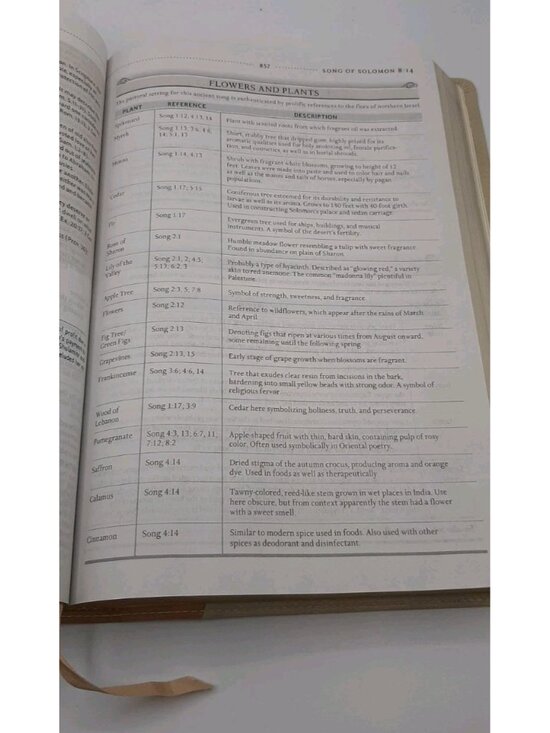 857
SONG OF SOLOMON 8:14
FLOWERS AND PLANTS
The pastoral setting for this ancient song is authenticated by prolific references to the flora of northern Israel.
PLANT REFERENCE DESCRIPTION
Spikenard Song 1:12; 4:13, 14 Plant with scented roots from which fragrant oil was extracted.
Myrrh Song 1:13; 3:6; 4:6, Short, stubby tree that dripped gum. Highly prized for its
14; 5:1, 13 aromatic qualities used for holy anointing oil, female purifica-
tion, and cosmetics, as well as in burial shrouds.
Henna Song 1:14; 4:13 Shrub with fragrant white blossoms, growing to height of 12
feet. Leaves were made into paste and used to color hair and nails
as well as the manes and tails of horses, especially by pagan
populations.
Cedar Song 1:17; 5:15 Coniferous tree esteemed for its durability and resistance to
larvae as well as its aroma. Grows to 140 feet with 40-foot girth.
Used in constructing Solomon's palace and sedan carriage.
Fir Song 1:17 Evergreen tree used for ships, buildings, and musical
instruments. A symbol of the desert's fertility.
Rose of Song 2:1 Humble meadow flower resembling a tulip with sweet fragrance.
Sharon Found in abundance on plain of Sharon.
Lily of the Song 2:1, 2; 4:5; Probably a type of hyacinth. Described as "glowing red," a variety
Valley 5:13; 6:2, 3 akin to red anemone. The common "madonna lily" plentiful in
Palestine.
Apple Tree Song 2:3, 5; 7:8 Symbol of strength, sweetness, and fragrance.
Flowers Song 2:12 Reference to wildflowers, which appear after the rains of March
and April.
Fig Tree/ Song 2:13 Denoting figs that ripen at various times from August onward,
Green Figs some remaining until the following spring.
Grapevines Song 2:13, 15 Early stage of grape growth when blossoms are fragrant.
Frankincense Song 3:6; 4:6, 14 Tree that exudes clear resin from incisions in the bark,
hardening into small yellow beads with strong odor. A symbol of
religious fervor.
Wood of Song 1:17; 3:9 Cedar here symbolizing holiness, truth, and perseverance.
Lebanon
Pomegranate Song 4:3, 13; 6:7, 11; Apple-shaped fruit with thin, hard skin, containing pulp of rosy
7:12; 8:2 color. Often used symbolically in Oriental poetry.
Saffron Song 4:14 Dried stigma of the autumn crocus, producing aroma and orange
dye. Used in foods as well as therapeutically.
Calamus Song 4:14 Tawny-colored, reed-like stem grown in wet places in India. Use
here obscure, but from context apparently the stem had a flower
with a sweet smell.
Cinnamon Song 4:14 Similar to modern spice used in foods. Also used with other
spices as deodorant and disinfectant.